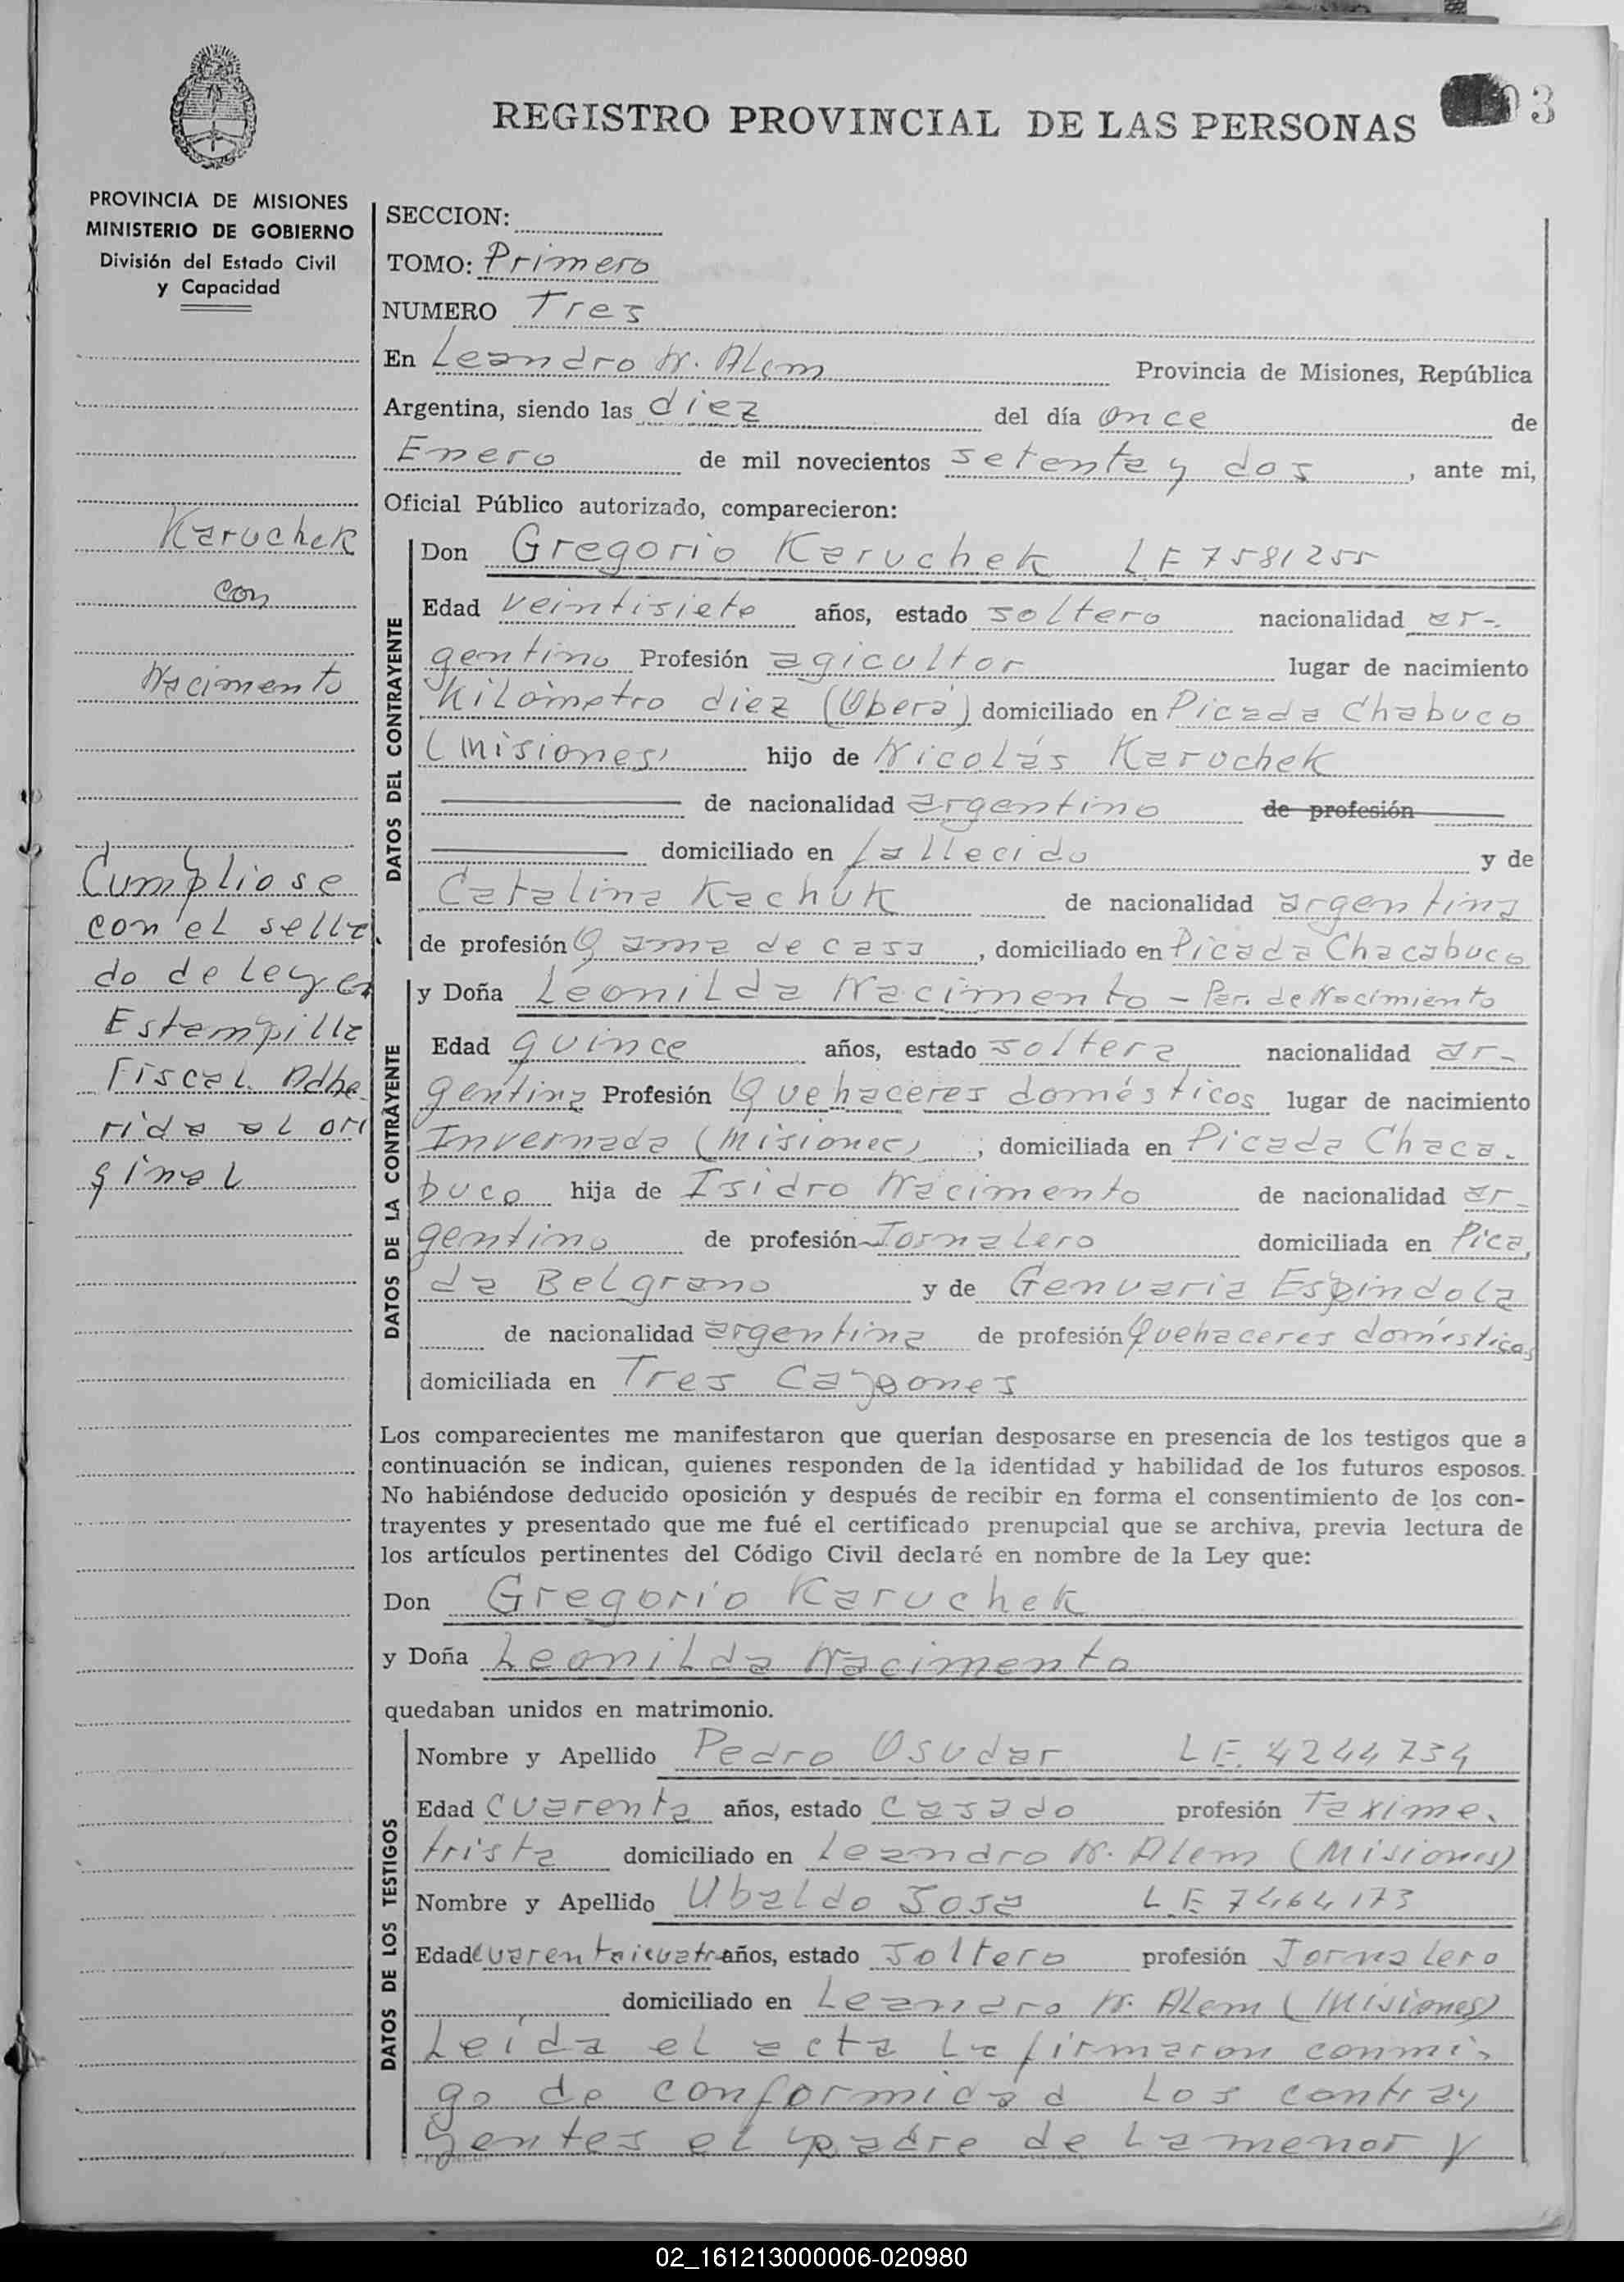 REGISTRO PROVINCIAL DE LAS PERSONAS
03
PROVINCIA DE MISIONES
MINISTERIO DE GOBIERNO
División del Estado Civil
y Capacidad
Karuchek
con
Nacimento
Cumpliose
con el sella
do de Ley en
Estampilla
Fiscal Adhe
rida al ori
ginal
SECCION:
TOMO: Primero
NUMERO Tres
En Leandro N. Alem Provincia de Misiones, República
Argentina, siendo las diez del día once de
Enero de mil novecientos setenta y dos, ante mi,
Oficial Público autorizado, comparecieron:
DATOS DEL CONTRAYENTE
Don Gregorio Karuchek LE 7581255
Edad veintisiete años, estado soltero nacionalidad ar-
gentino Profesión agicultor lugar de nacimiento
Kilómetro diez (Oberá) domiciliado en Picada Chabuco
(Misiones) hijo de Nicolás Karuchek
de nacionalidad argentino de profesión
domiciliado en fallecido y de
Catalina Kachuk de nacionalidad argentina
de profesión Q ama de casa, domiciliado en Picada Chacabuco
DATOS DE LA CONTRAYENTE
y Doña Leonilda Nacimento - Par. de Nacimiento
Edad quince años, estado soltera nacionalidad ar-
gentina Profesión Quehaceres domésticos lugar de nacimiento
Invernada (Misiones), domiciliada en Picada Chaca-
buco hija de Isidro Nacimento de nacionalidad ar-
gentino de profesión Jornalero domiciliada en Pica
da Belgrano y de Genuaria Espindola
de nacionalidad argentina de profesión Quehaceres domésticos
domiciliada en Tres Capones
Los comparecientes me manifestaron que querían desposarse en presencia de los testigos que a
continuación se indican, quienes responden de la identidad y habilidad de los futuros esposos.
No habiéndose deducido oposición y después de recibir en forma el consentimiento de los con-
trayentes y presentado que me fué el certificado prenupcial que se archiva, previa lectura de
los artículos pertinentes del Código Civil declaré en nombre de la Ley que:
Don Gregorio Karuchek
y Doña Leonilda Nacimento
quedaban unidos en matrimonio.
DATOS DE LOS TESTIGOS
Nombre y Apellido Pedro Osudar LE. 4244734
Edad cuarenta años, estado casado profesión Taxime-
trista domiciliado en Leandro N. Alem (Misiones)
Nombre y Apellido Ubaldo Sosa LE 7464173
Edad cuarentaicuatro años, estado soltero profesión Jornalero
domiciliado en Leandro N. Alem (Misiones)
Leída el acta la firmaron conmi-
go de conformidad los contray
yentes el padre de la menor y
02_161213000006-020980